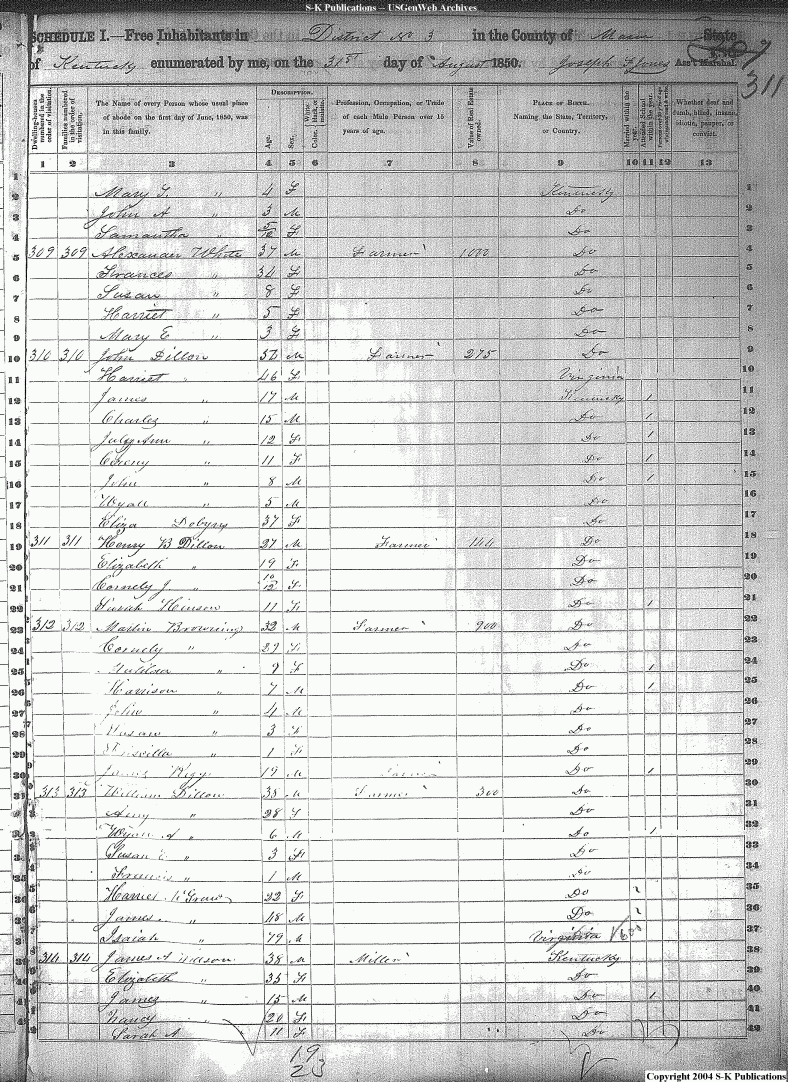 S-K Publications – USGenWeb Archives
SCHEDULE I.—Free Inhabitants in District No 3 in the County of Mason State
of Kentucky enumerated by me, on the 31st day of August 1850. Joseph F Jones Ass't Marshal.
311
Dwelling-houses numbered in the order of visitation. Families numbered in the order of visitation. The Name of every Person whose usual place of abode on the first day of June, 1850, was in this family. Description. Age. Sex. Color, White, black, or mulatto. Profession, Occupation, or Trade of each Male Person over 15 years of age. Value of Real Estate owned. Place of Birth. Naming the State, Territory, or Country. Married within the year. Attended School within the year. Whether deaf and dumb, blind, insane, idiotic, pauper, or convict.
1 2 3 4 5 6 7 8 9 10 11 12 13
1 Mary F. " 4 F Kentucky 1
2 John A " 3 M Do 2
3 Samantha " 5/12 F Do 3
4 309 309 Alexander White 37 M Farmer 1000 Do 4
5 Frances " 34 F Do 5
6 Susan " 8 F Do 6
7 Harriet " 5 F Do 7
8 Mary E " 3 F Do 8
9 310 310 John Dillon 56 M Farmer 275 Do 9
10 Harriet " 46 F Virginia 10
11 James " 17 M Kentucky 1 11
12 Charles " 15 M Do 1 12
13 July Ann " 12 F Do 1 13
14 " 11 F Do 1 14
15 John " 8 M Do 1 15
16 Wyatt " 5 M Do 16
17 Eliza Dobyns 37 F Do 17
18 311 311 Henry B Dillon 27 M Farmer 144 Do 18
19 Elizabeth " 19 F Do 19
20 Cornely J " 10/12 F Do 20
21 Sarah Hinson 11 F Do 1 21
22 312 312 Martin Browning 32 M Farmer 900 Do 22
23 Cornely " 29 F Do 23
24 " 9 F Do 1 24
25 Harrison " 7 M Do 1 25
26 John " 4 M Do 26
27 Susan " 3 F Do 27
28 Priscilla " 1 F Do 28
29 James Riggs 19 M Farmer Do 1 29
30 313 313 William Dillon 38 M Farmer 300 Do 30
31 Amy " 28 F Do 31
32 Wyatt A " 6 M Do 1 32
33 Susan E " 3 F Do 33
34 Francis " 1 M Do 34
35 Harriet 22 F Do 35
36 James " 48 M Do 36
37 Isaiah " 79 M Virginia 37
38 314 314 James A 38 M Miller Kentucky 38
39 Elizabeth " 35 F Do 39
40 James " 15 M Do 1 40
41 Nancy " 20 F Do 41
42 Sarah A " 11 F Do 42
19
23
Copyright 2004 S-K Publications